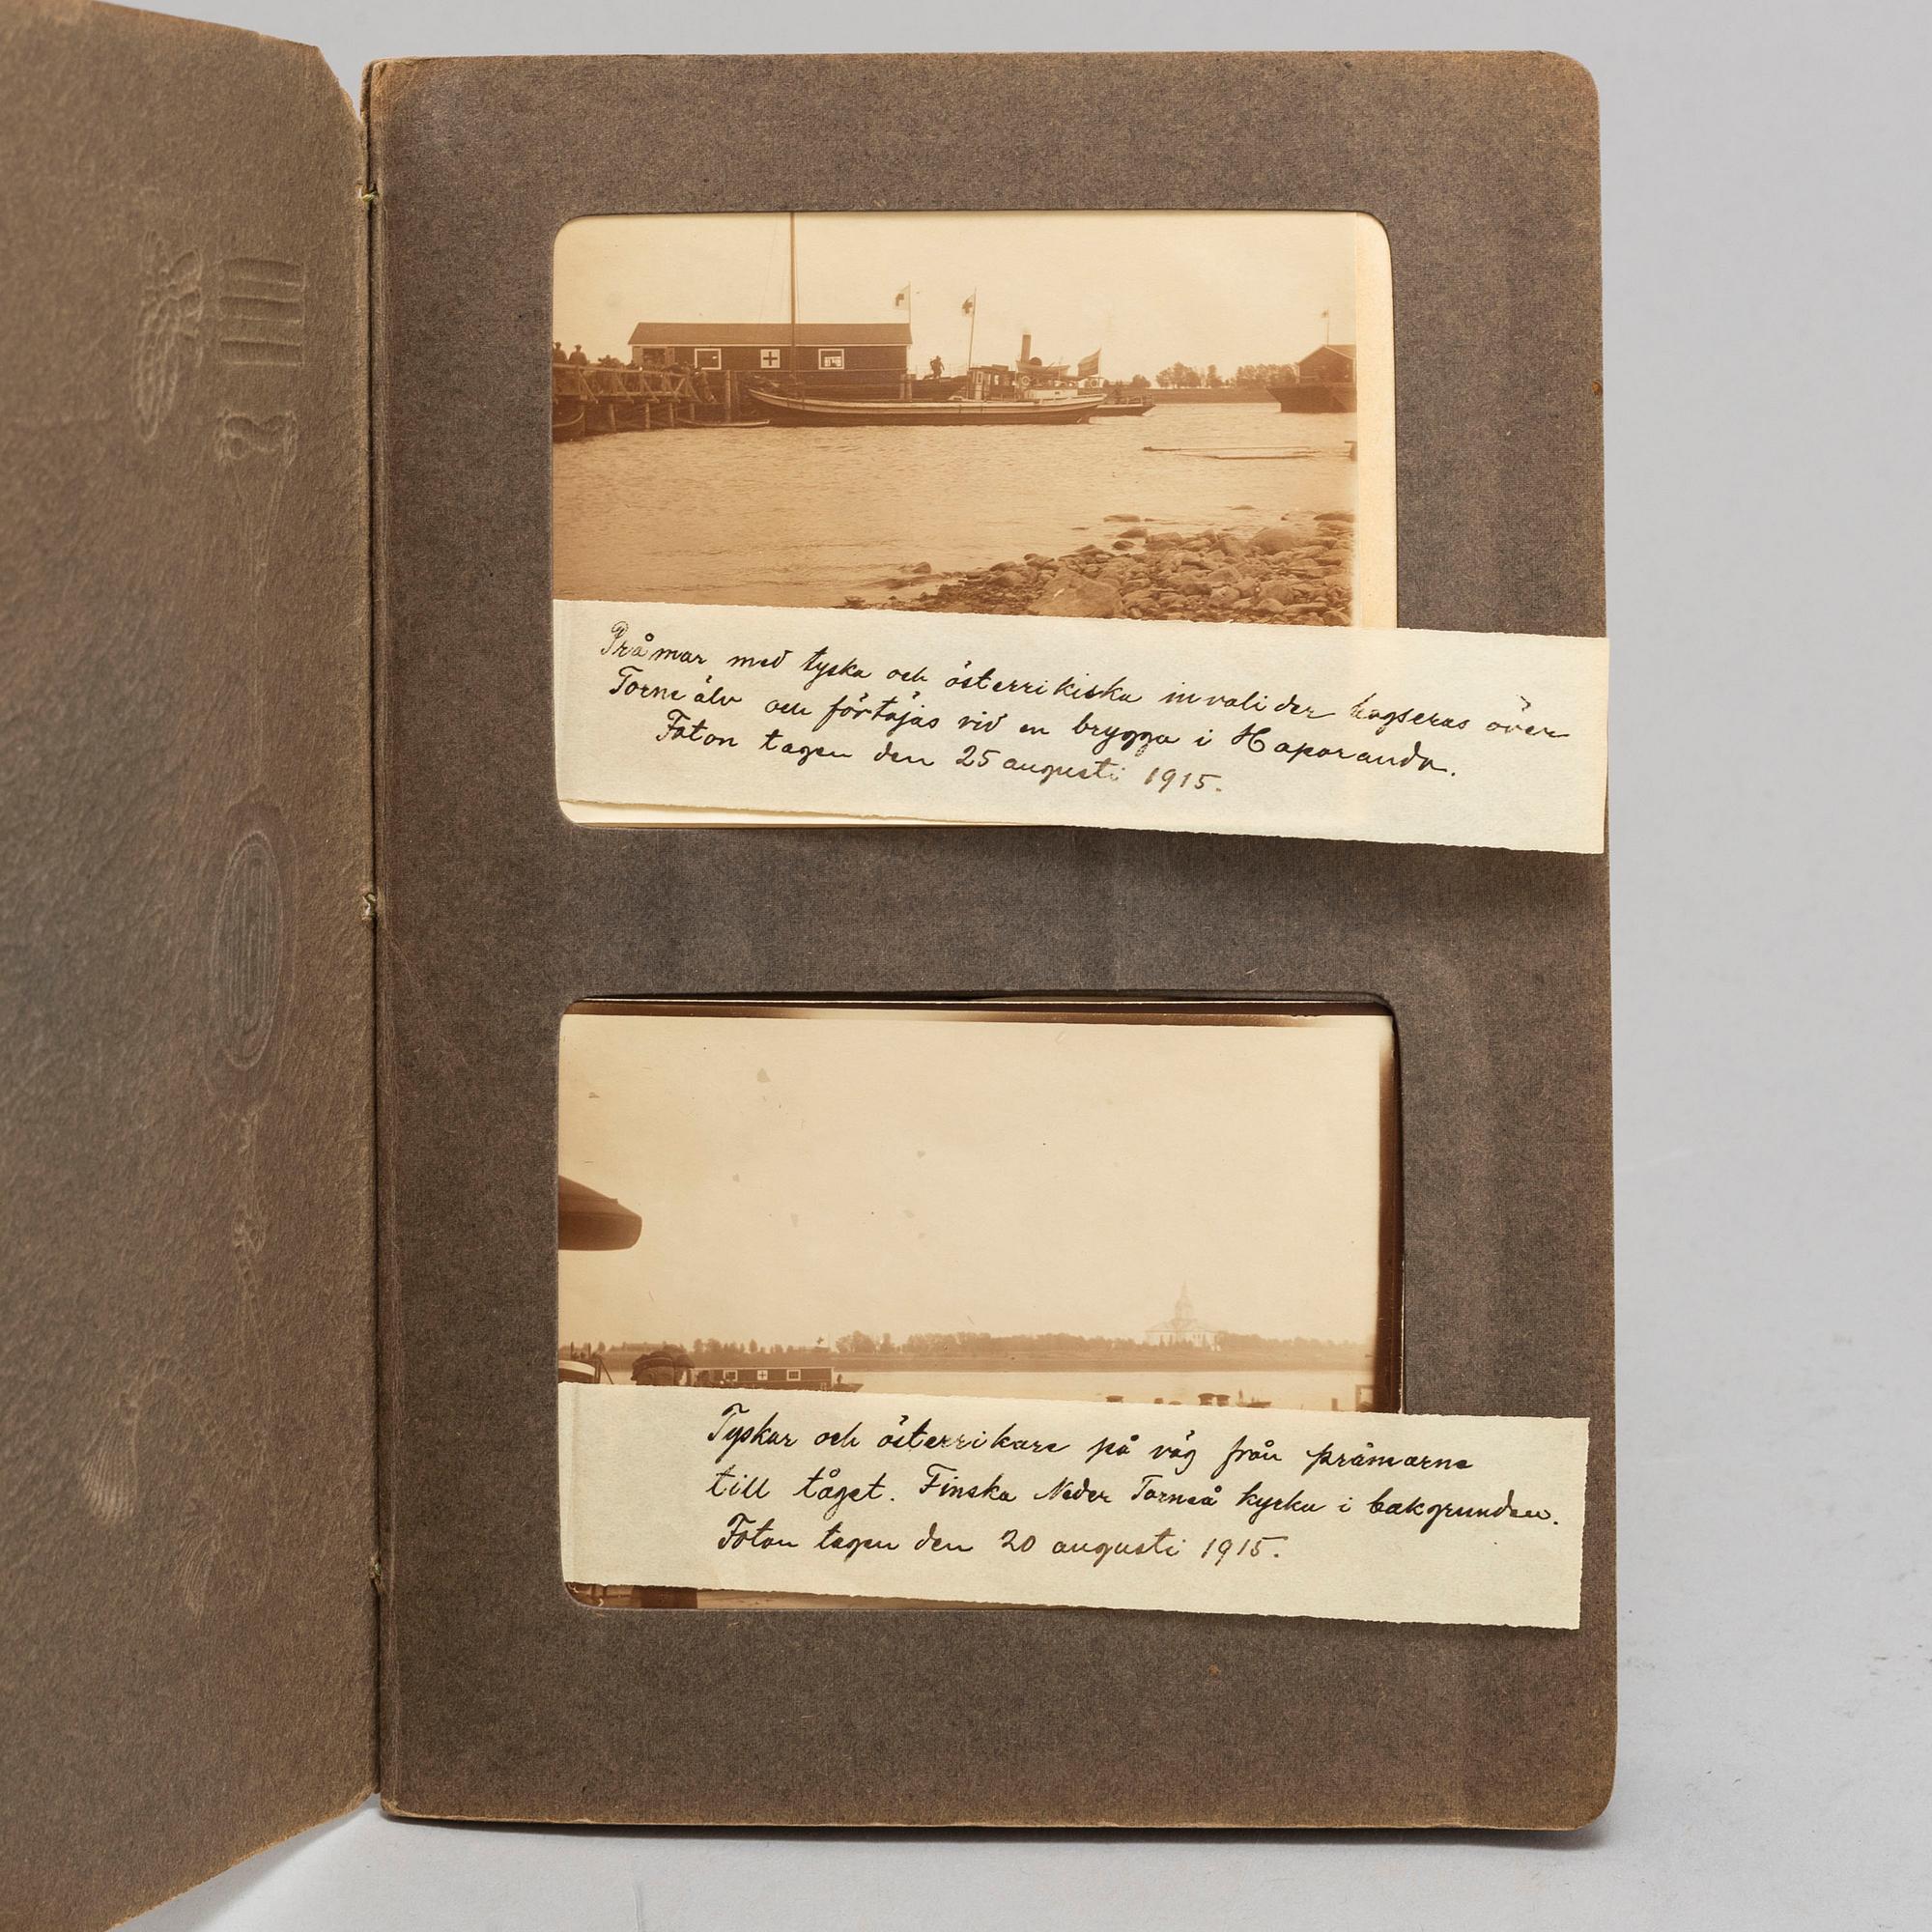 Pråmar med tyska och österrikiska invalider bogseras över
Torne älv och förtöjas vid en brygga i Haparanda.
Foton tagen den 25 augusti 1915.
Tyskar och österrikare på väg från pråmarna
till tåget. Finska Neder Torneå kyrka i bakgrunden.
Foton tagen den 20 augusti 1915.